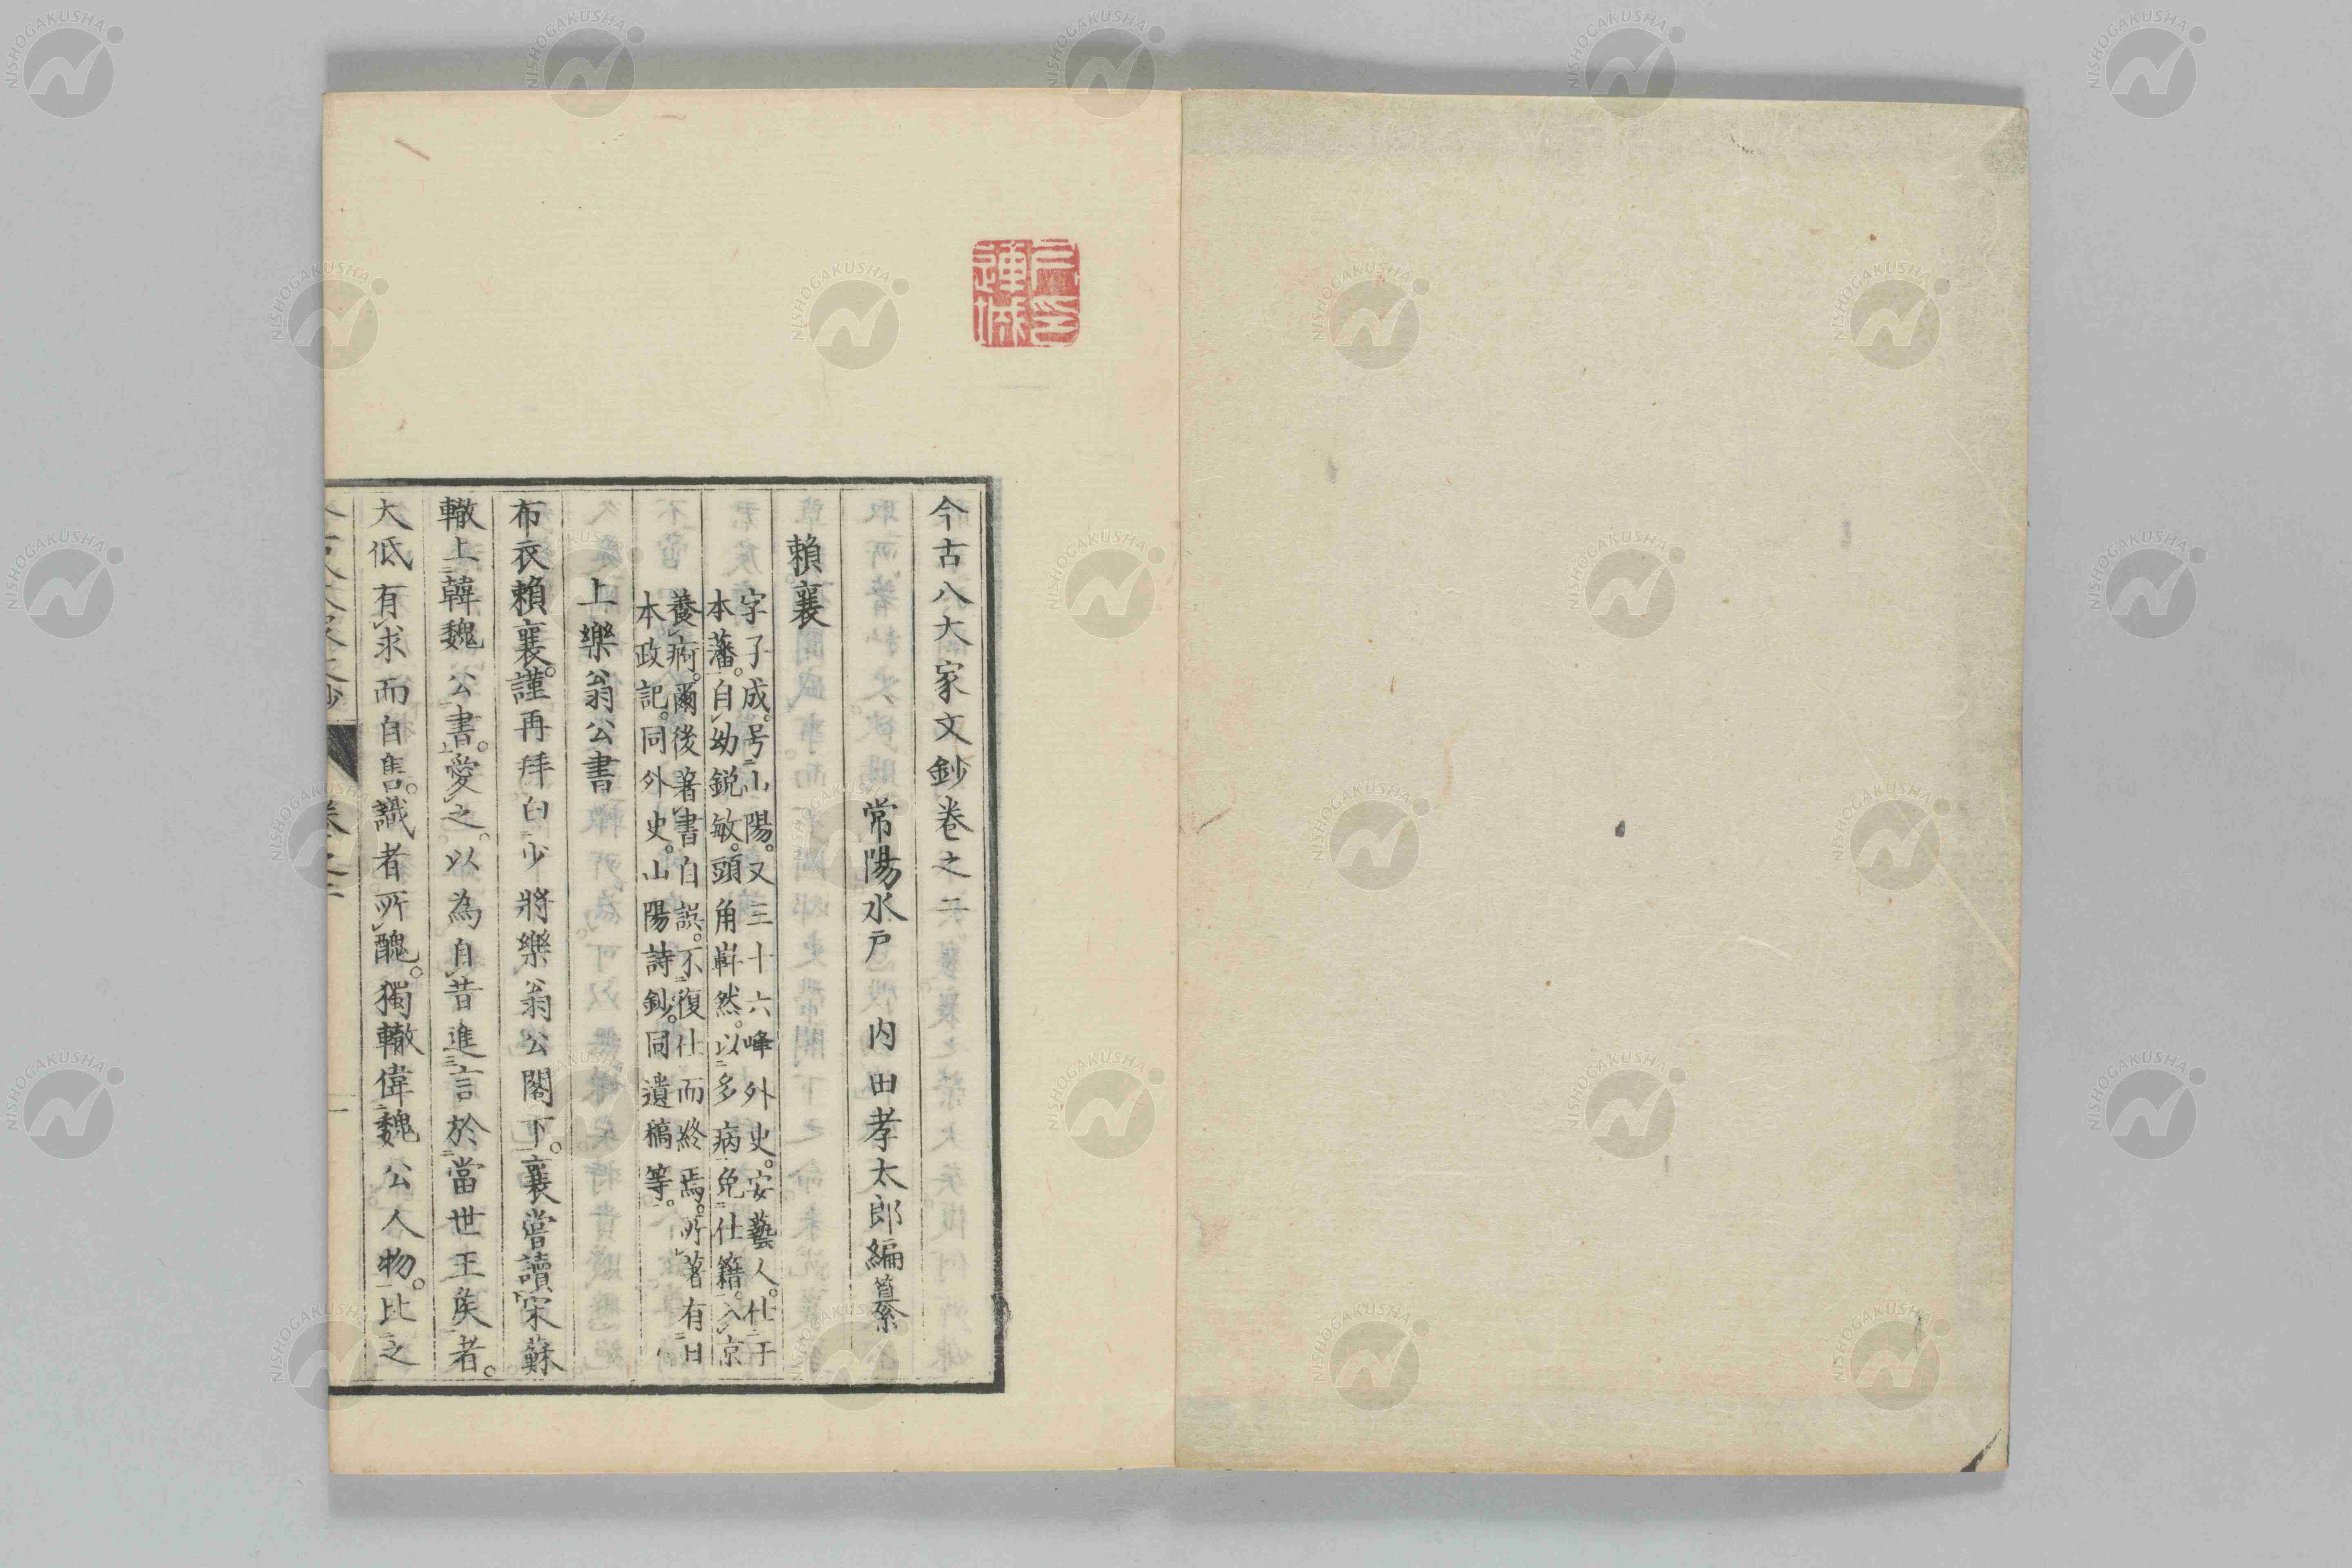 今古八大家文鈔卷之二
常陽水戸 内田孝太郎編纂
賴襄
字子成。号山陽。又三十六峰外史。安藝人。仕于
本藩。自幼鋭敏。頭角嶄然。以多病免仕籍。入京
養病。爾後著書自誤。不復仕而終焉。所著有日
本政記。同外史。山陽詩鈔。同遺稿等。
上樂翁公書
布衣賴襄。謹再拜白少將樂翁公閣下。襄嘗讀宋蘇
轍上韓魏公書。愛之。以為自昔進言於當世王矦者。
大低有求而自售。識者所醜。獨轍偉魏公人物。比之
NISHOGAKUSHA